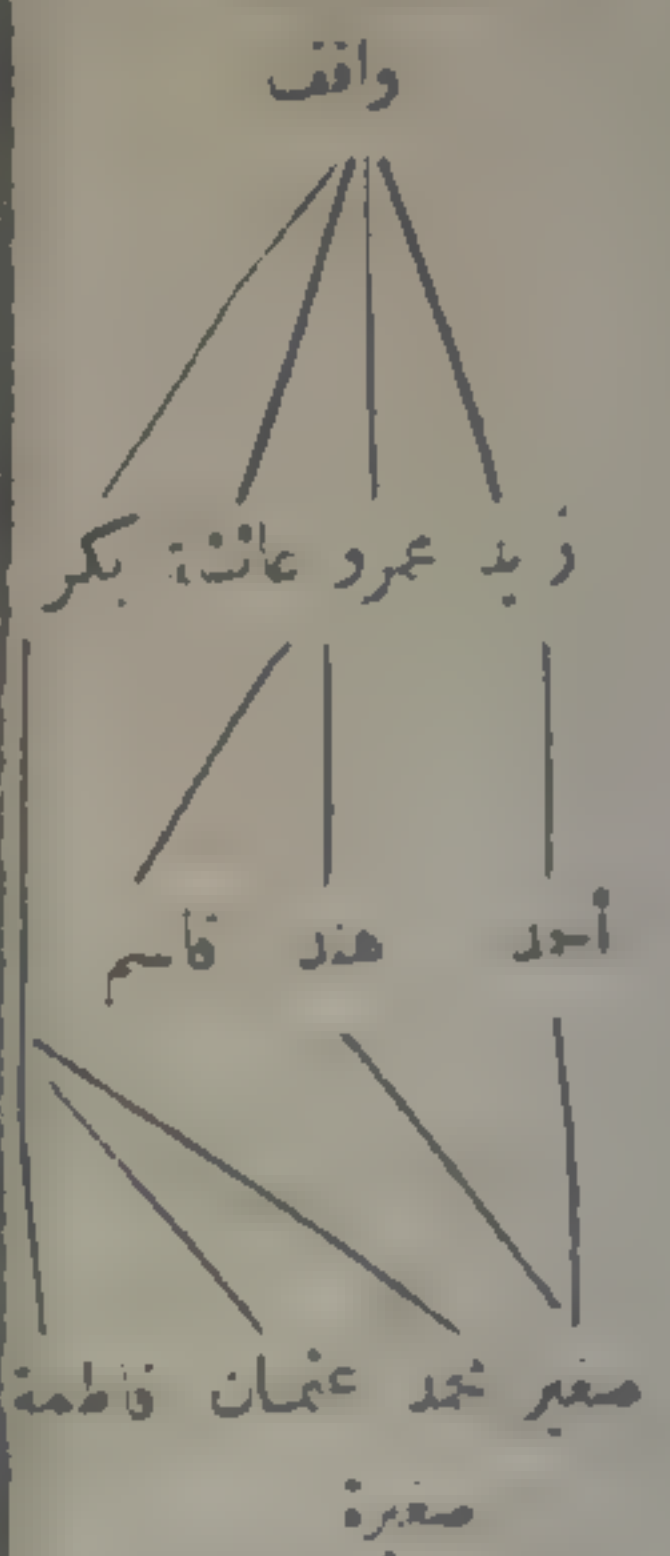 واقف
زيد عمرو عائشة بكر
أحمد هند قاسم
صغير محمد عثمان فاطمة
صغيرة